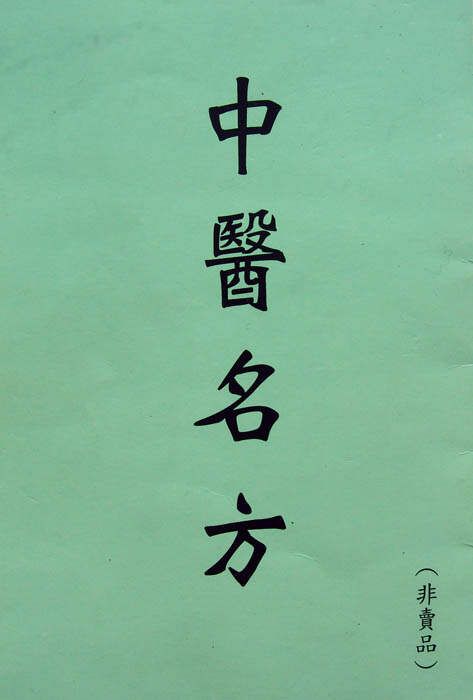 中醫名方
（非賣品）